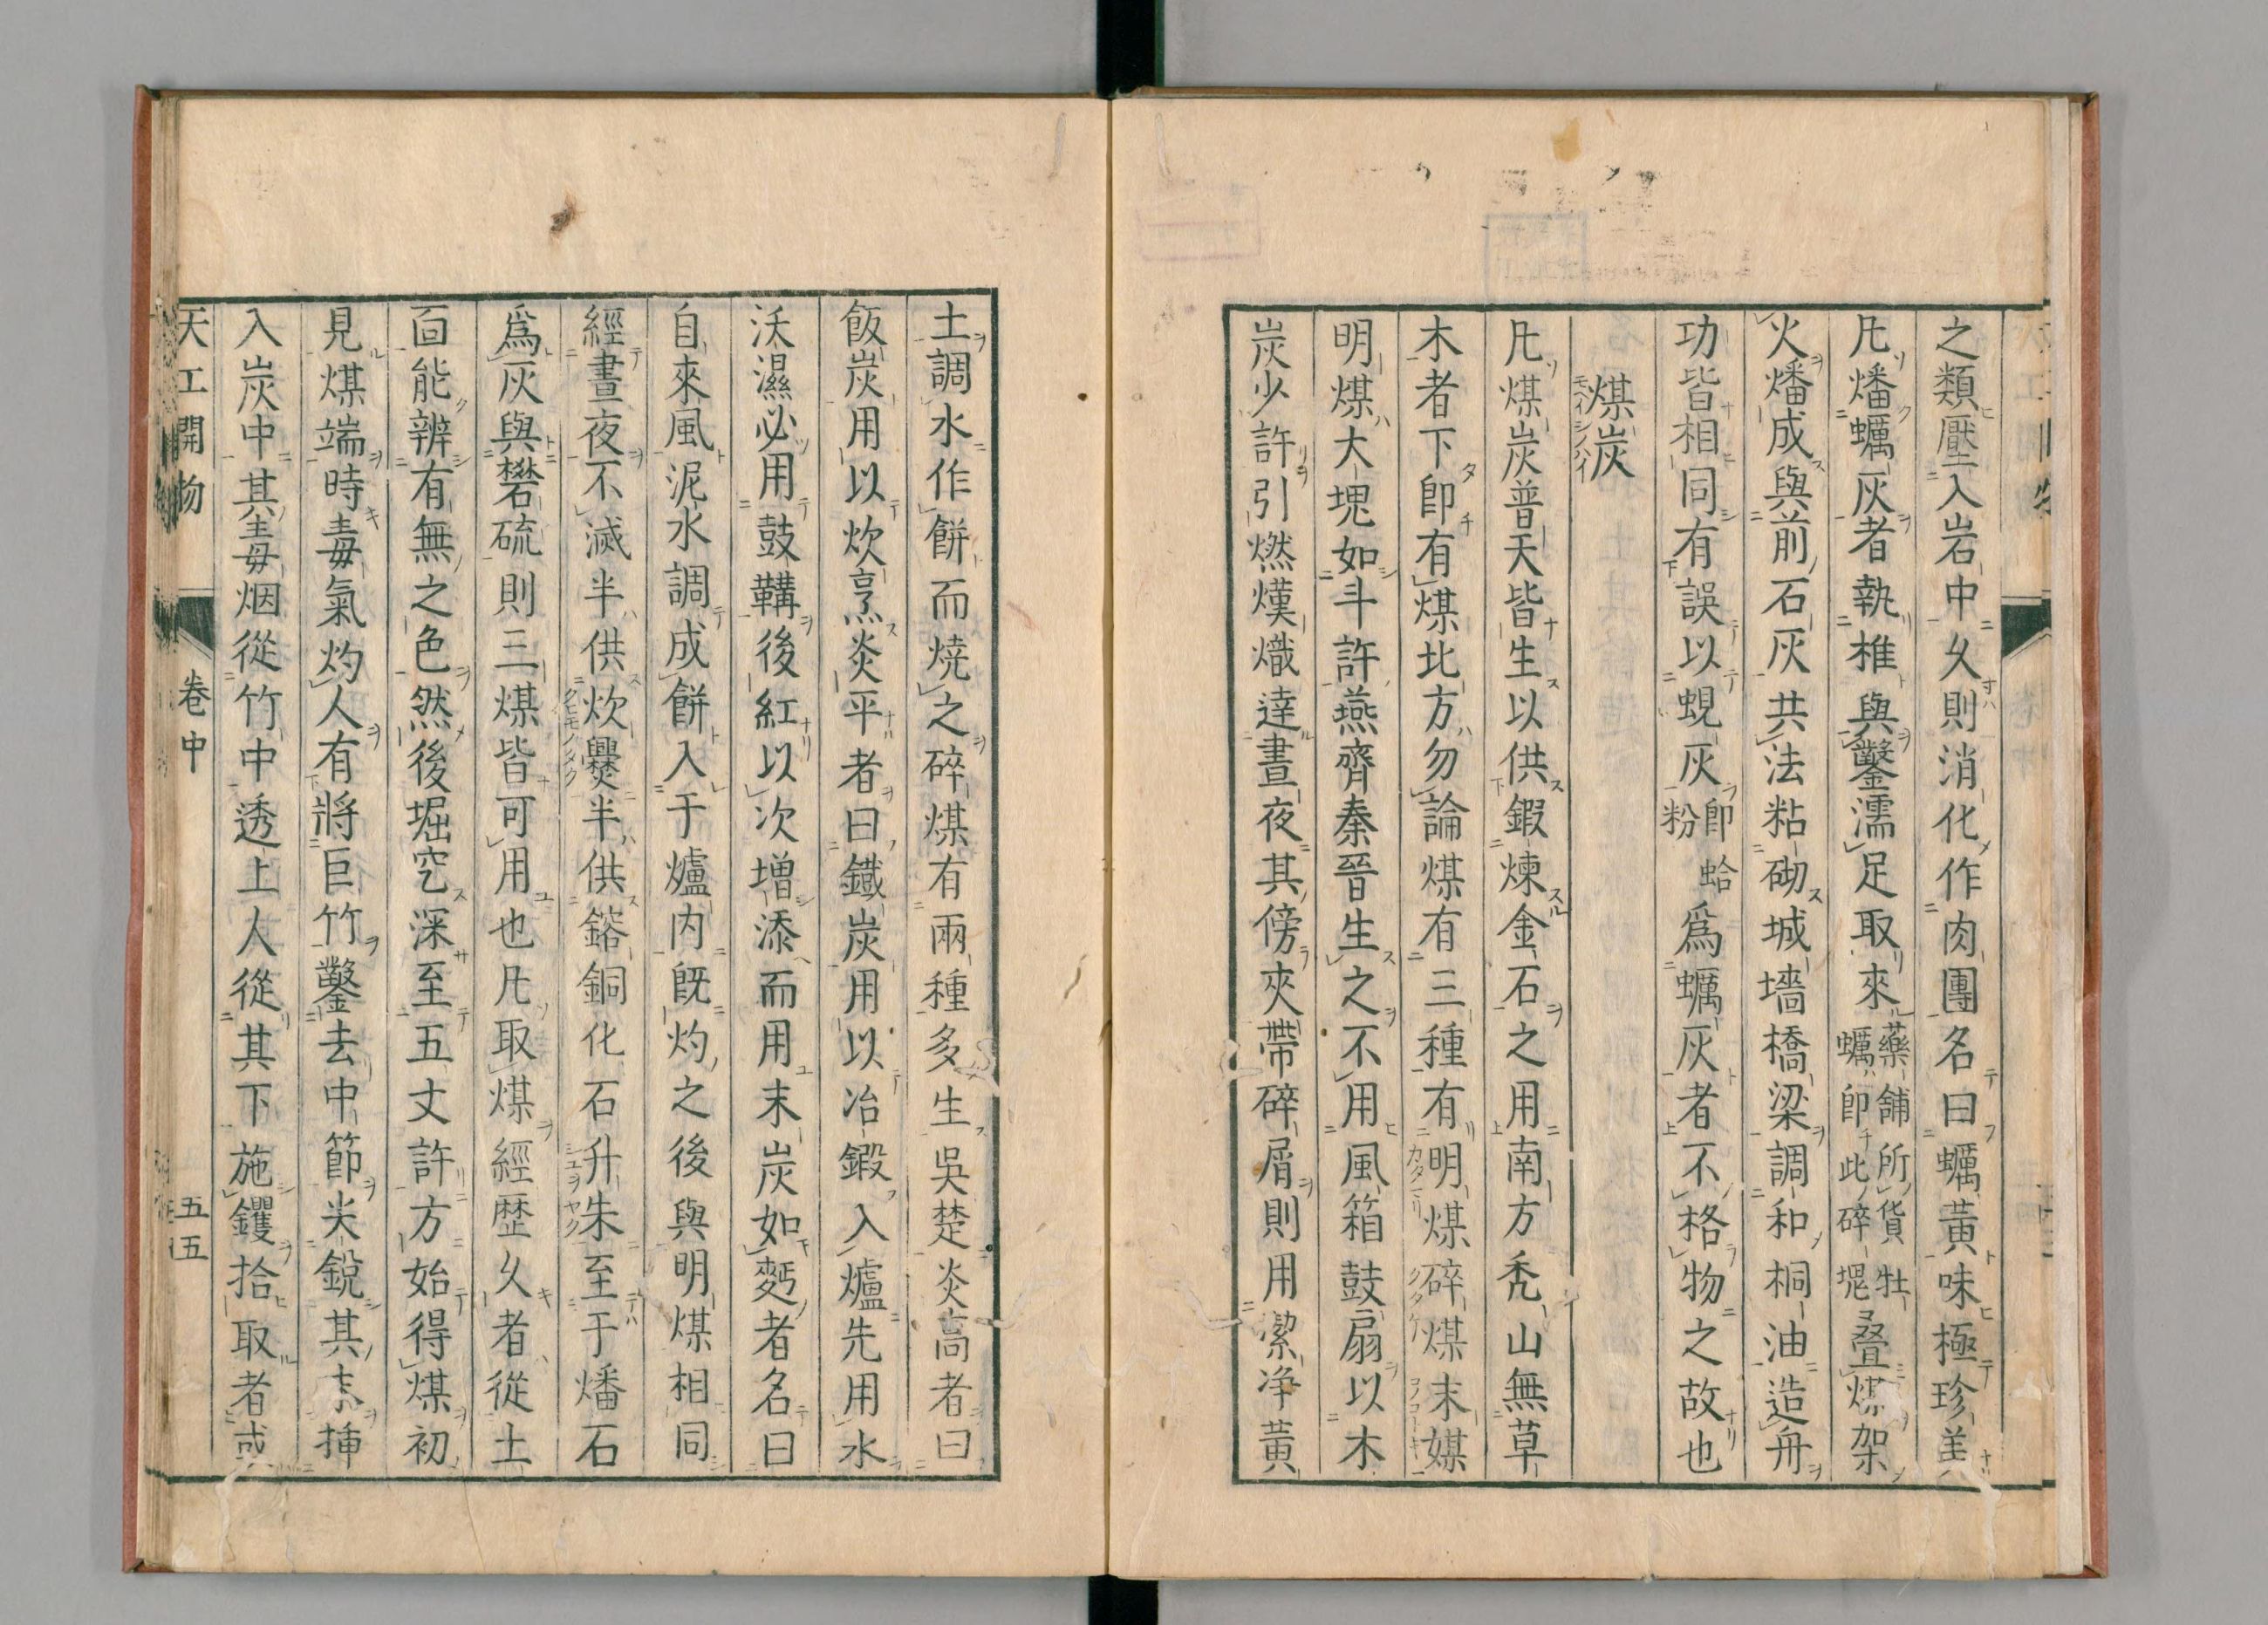 之類壓入岩中久則消化作肉團名曰蠣黃味極珍美
凡燔蠣灰者執椎與鑿濡足取來藥舖所貨牡蠣卽此碎塊疊煤架
火燔成與前石灰共法粘砌城墻橋梁調和桐油造舟
功皆相同有誤以蜆灰卽蛤粉爲蠣灰者不格物之故也
煤炭モヘイシノハイ
凡煤炭普天皆生以供鍜煉金石之用南方禿山無草
木者下卽有煤北方勿論煤有三種有明煤碎煤末媒
明煤大塊如斗許燕齊秦晉生之不用風箱鼓扇以木
炭少許引燃熯熾達晝夜其傍夾帶碎屑則用潔净黃
土調水作餅而燒之碎煤有兩種多生吳楚炎高者曰
飯炭用以炊烹炎平者曰鐵炭用以冶鍛入爐先用水
沃濕必用鼓鞴後紅以次增添而用末炭如麪者名曰
自來風泥水調成餅入于爐內旣灼之後與明煤相同
經晝夜不滅半供炊爨半供鎔銅化石升朱至于燔石
爲灰與礬硫則三煤皆可用也凡取煤經歷久者從土
面能辨有無之色然後堀穵深至五丈許方始得煤初
見煤端時毒氣灼人有將巨竹鑿去中節尖銳其末揷
入炭中其毒烟從竹中透上人從其下施钁拾取者或
天工開物　卷中　五五